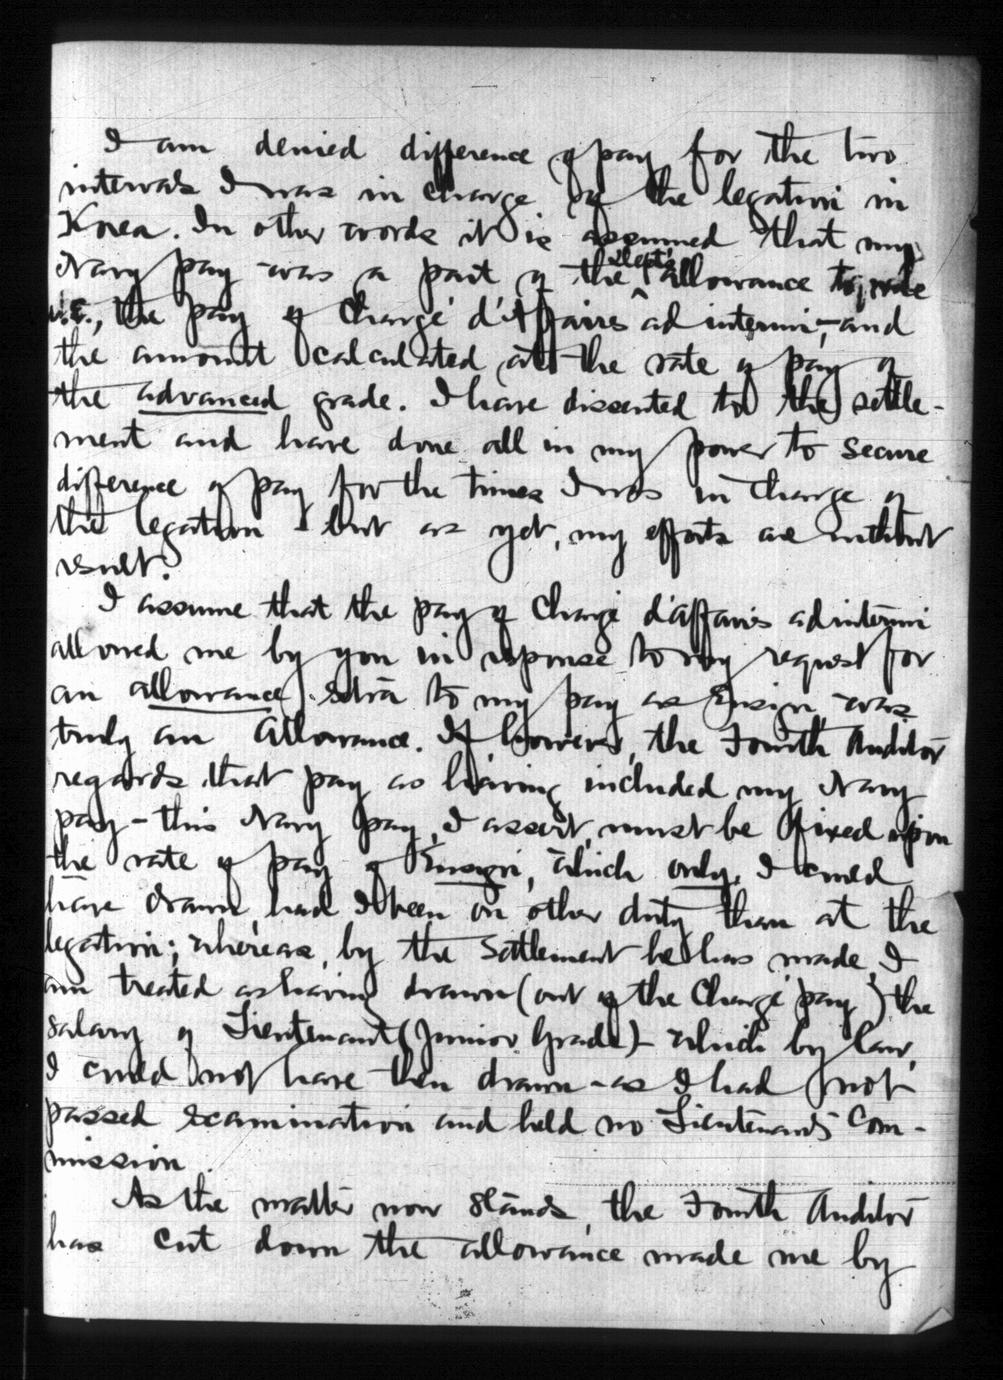 I am denied difference of pay for the two
intervals I was in charge of the legation in
Korea. In other words it is assumed that my
Navy pay was a part of the Dept's allowance to me
i.e., the pay of Chargé d'Affaires ad interim, - and
the amount calculated at the rate of pay of
the advanced grade. I have dissented to the settle-
ment and have done all in my power to secure
difference of pay for the times I was in charge of
the legation - but as yet, my efforts are without
result.
I assume that the pay of Chargé d'affaires ad interim
allowed me by you in reponse to my request for
an allowance extra to my pay as Ensign was
truly an allowance. If however, the Fourth Auditor
regards that pay as having included my Navy
pay - this Navy pay, I assert, must be fixed upon
the rate of pay of Ensign, which only, I could
have drawn, had I been on other duty than at the
legation; whereas, by the settlement he has made, I
am treated as having drawn (out of the Chargé pay) the
salary of Lieutenant (Junior Grade) - which by law,
I could not have then drawn - as I had not
passed examination and held no Lieutenants' Com-
mission.
As the matter now stands, the Fourth Auditor
has cut down the allowance made me by